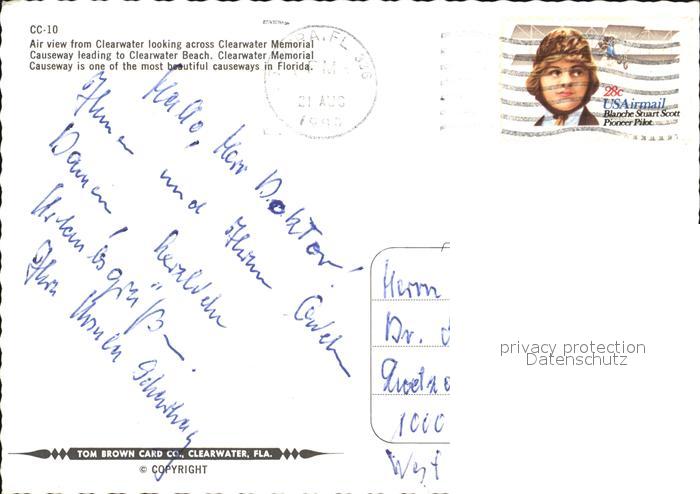 CC-10
Air view from Clearwater looking across Clearwater Memorial
Causeway leading to Clearwater Beach. Clearwater Memorial
Causeway is one of the most beautiful causeways in Florida.
FL 336
PM
21 AUG
28c
USAirmail
Blanche Stuart Scott
Pioneer Pilot
Hallo, Herr Doktor!
Ihnen und Ihren
Damen herzliche
Urlaubsgrüße.
Ihre
Herrn
Dr.
1000
West
privacy protection
Datenschutz
TOM BROWN CARD CO., CLEARWATER, FLA.
© COPYRIGHT